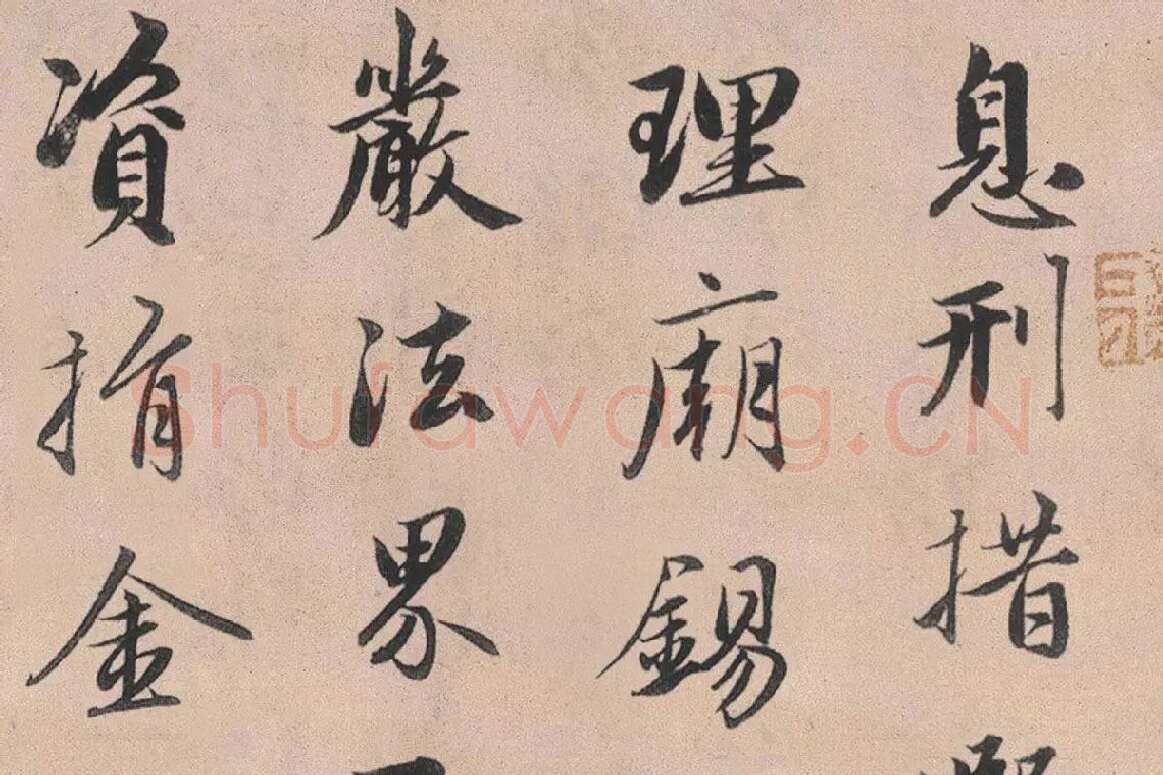 息刑措
理廟錫
嚴法界
資捐金
Shufawang.CN